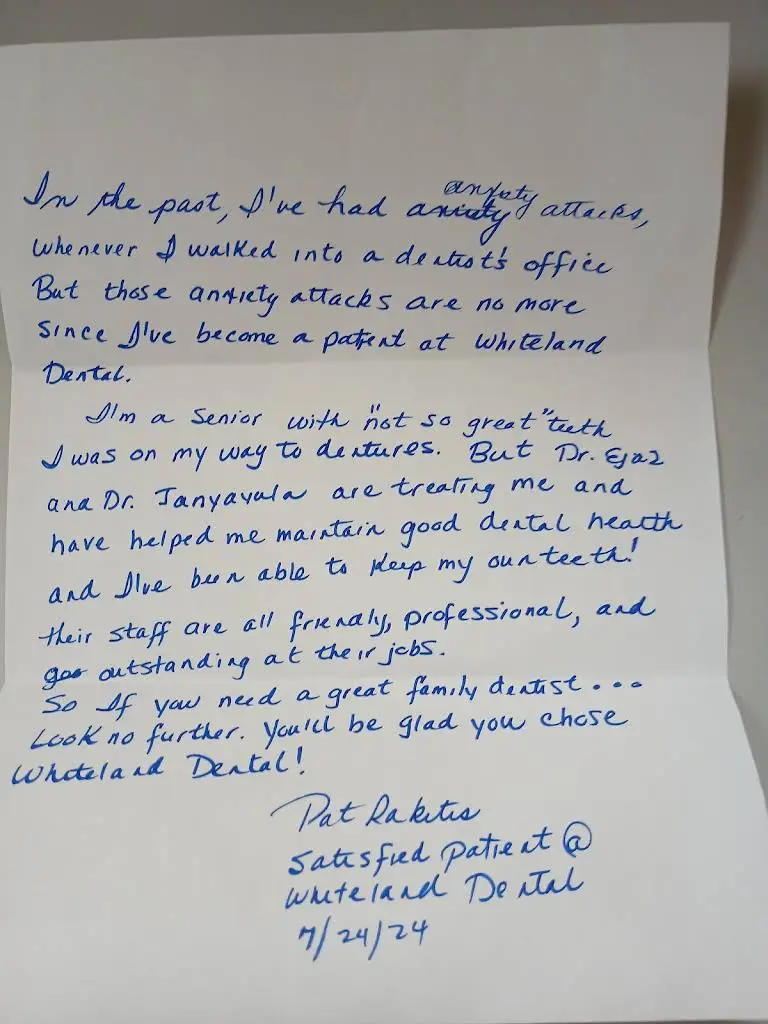 In the past, I've had anxiety attacks,
whenever I walked into a dentist's office
But those anxiety attacks are no more
since I've become a patient at Whiteland
Dental.
I'm a senior with "not so great" teeth
I was on my way to dentures. But Dr. Ejaz
and Dr. Janyavula are treating me and
have helped me maintain good dental health
and I've been able to keep my own teeth!
their staff are all friendly, professional, and
outstanding at their jobs.
So If you need a great family dentist...
Look no further. You'll be glad you chose
Whiteland Dental!
Pat Rakitis
Satisfied patient @
Whiteland Dental
7/24/24